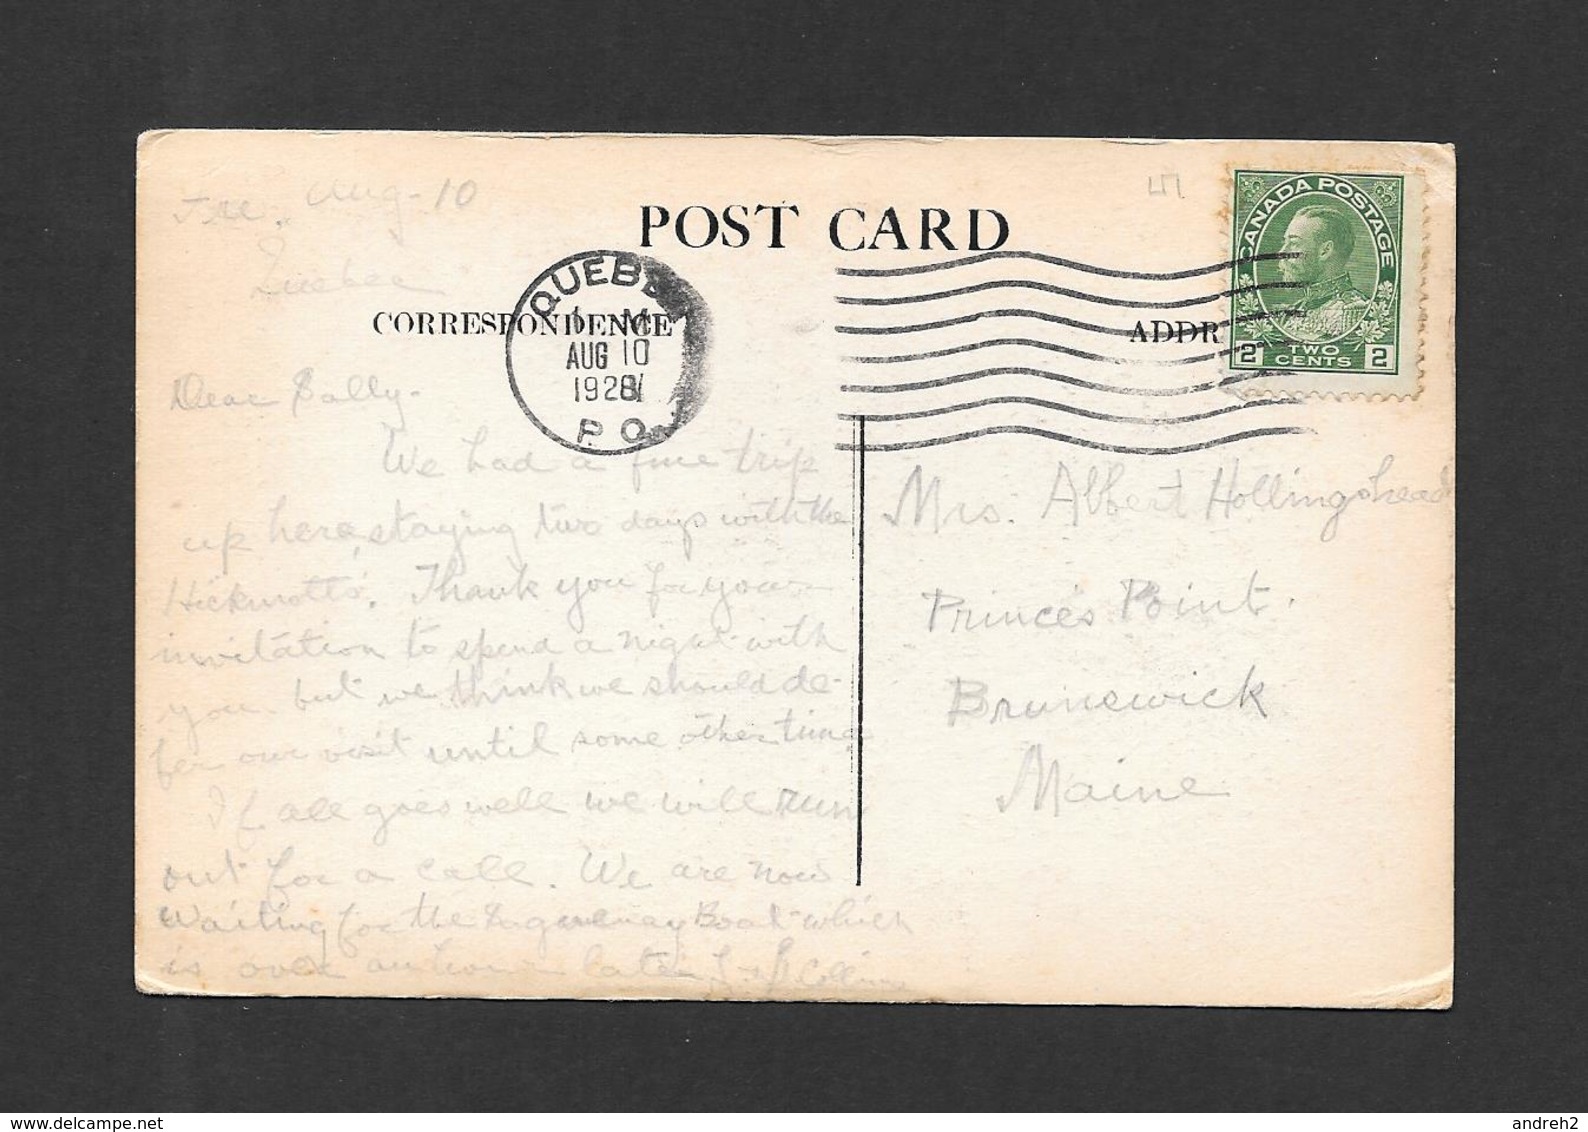 Fri. Aug-10
Quebec
POST CARD
CORRESPONDENCE
ADDR
QUEBEC
1 M
AUG 10
1928
P.Q.
CANADA POSTAGE
2 TWO CENTS 2
Dear Sally-
We had a fine trip
up here, staying two days with the
Hickmotts. Thank you for your
invitation to spend a night with
you but we think we should de-
fer our visit until some other time
If all goes well we will run
out for a call. We are now
waiting for the Saguenay Boat which
is over an hour late. Collins
Mrs. Albert Hollingshead
Prince's Point.
Brunswick
Maine
www.delcampe.net
andreh2